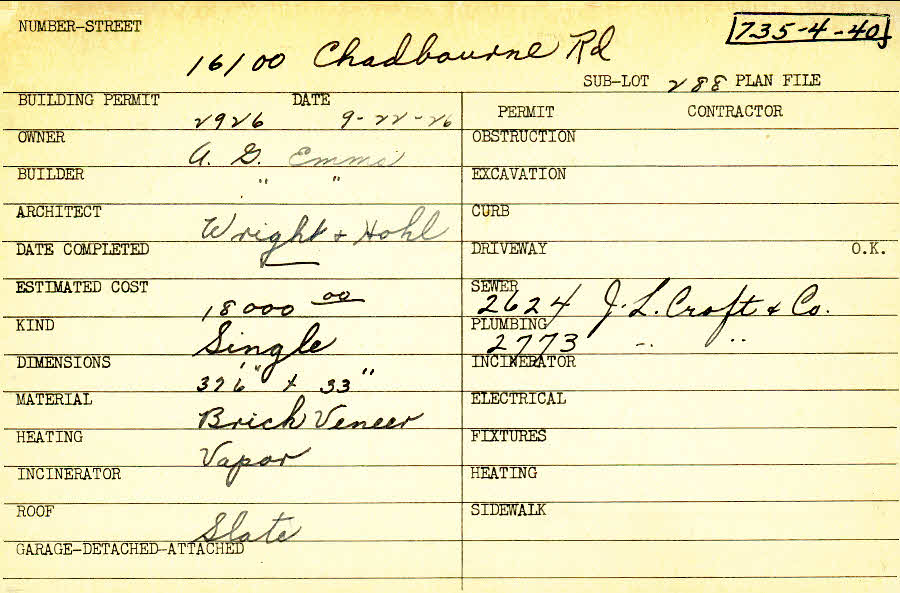 NUMBER-STREET
735-4-40
16100 Chadbourne Rd
SUB-LOT 288 PLAN FILE
BUILDING PERMIT 2926 DATE 9-22-26
OWNER A. G.
BUILDER " "
ARCHITECT Wright & Hohl
DATE COMPLETED
ESTIMATED COST 18000 00
KIND Single
DIMENSIONS 37'6" x 33"
MATERIAL Brick Veneer
HEATING Vapor
INCINERATOR
ROOF Slate
GARAGE-DETACHED-ATTACHED
PERMIT CONTRACTOR
OBSTRUCTION
EXCAVATION
CURB
DRIVEWAY O.K.
SEWER 2624 J. L. Croft & Co.
PLUMBING 2773 " "
INCINERATOR
ELECTRICAL
FIXTURES
HEATING
SIDEWALK